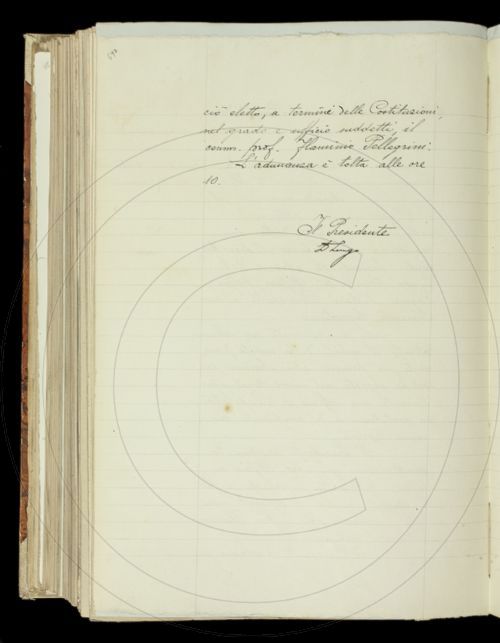 ciò eletto, a termine delle Costituzioni,
nel grado e ufficio suddetti, il
comm. prof. Flaminio Pellegrini.
L'adunanza è tolta alle ore
10.
Il Presidente